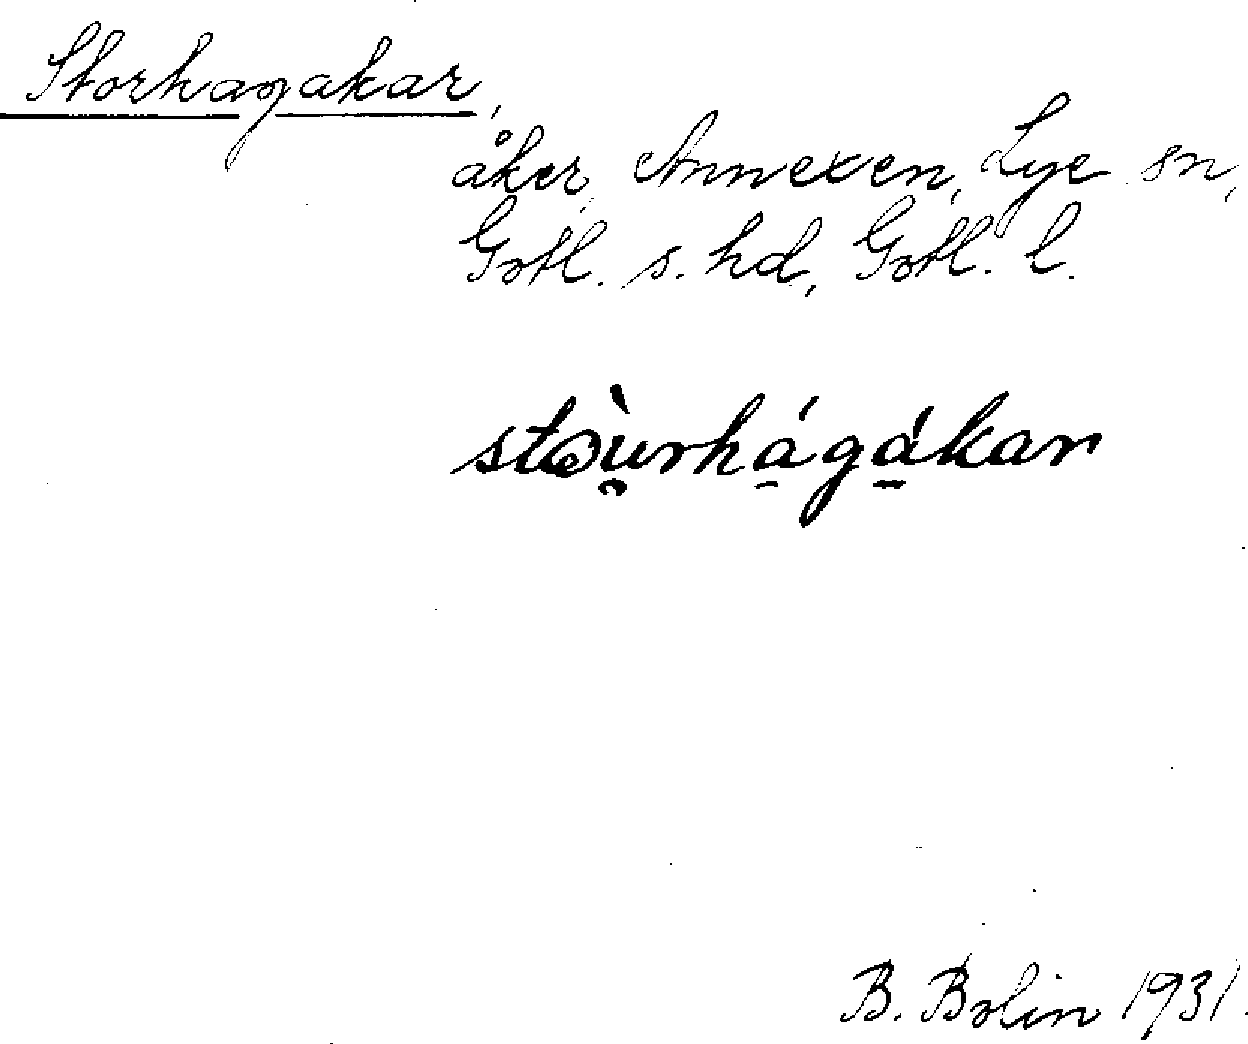 Storhagakar,
åker, Annexen, Lye sn,
Gotl. s. hd, Gotl. l.
stòu̯rhá̠gá̠kar
B. Bolin 1931.